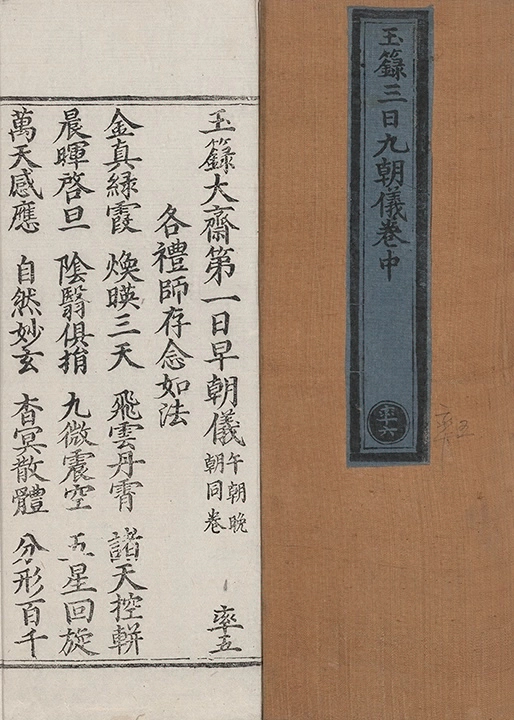 玉籙三日九朝儀卷中
率五
玉籙大齋第一日早朝儀 午朝晚朝同卷 率五
各禮師存念如法
金真緑霞 煥暎三天 飛雲丹霄 諸天控軿
晨暉啓旦 陰翳俱捐 九微震空 五星回旋
萬天感應 自然妙玄 杳冥散體 分形百千